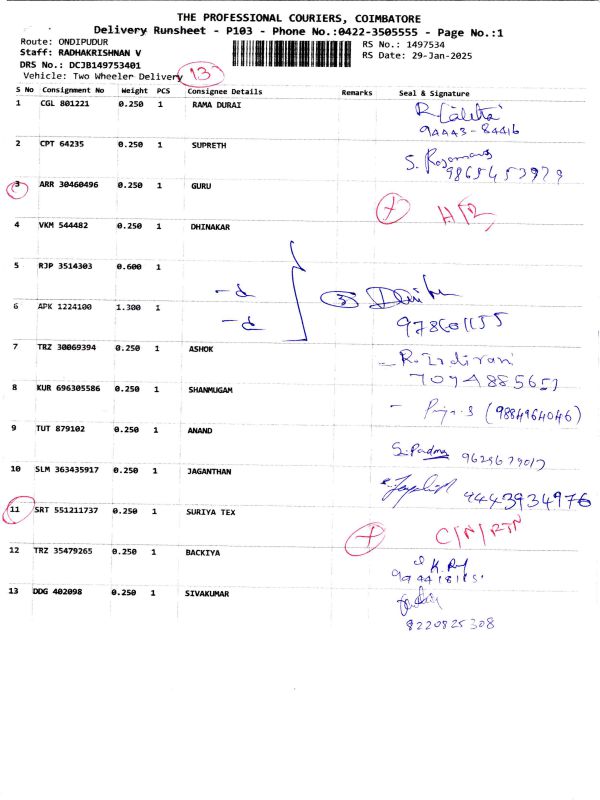 THE PROFESSIONAL COURIERS, COIMBATORE
Delivery Runsheet - P103 - Phone No.:0422-3505555 - Page No.:1
Route: ONDIPUDUR RS No.: 1497534
Staff: RADHAKRISHNAN V RS Date: 29-Jan-2025
DRS No.: DCJB149753401
Vehicle: Two Wheeler Delivery 13
S No Consignment No Weight PCS Consignee Details Remarks Seal & Signature
1 CGL 801221 0.250 1 RAMA DURAI R Lalita
94443-84416
2 CPT 64235 0.250 1 SUPRETH
3 ARR 30460496 0.250 1 GURU
4 VKM 544482 0.250 1 DHINAKAR
5 RJP 3514303 0.600 1
6 APK 1224100 1.300 1
7 TRZ 30069394 0.250 1 ASHOK
8 KUR 696305586 0.250 1 SHANMUGAM (9884964046)
9 TUT 879102 0.250 1 ANAND S. Padma
10 SLM 363435917 0.250 1 JAGANTHAN 9443934976
11 SRT 551211737 0.250 1 SURIYA TEX C/N/RTN
12 TRZ 35479265 0.250 1 BACKIYA
13 DDG 402098 0.250 1 SIVAKUMAR
8220825308